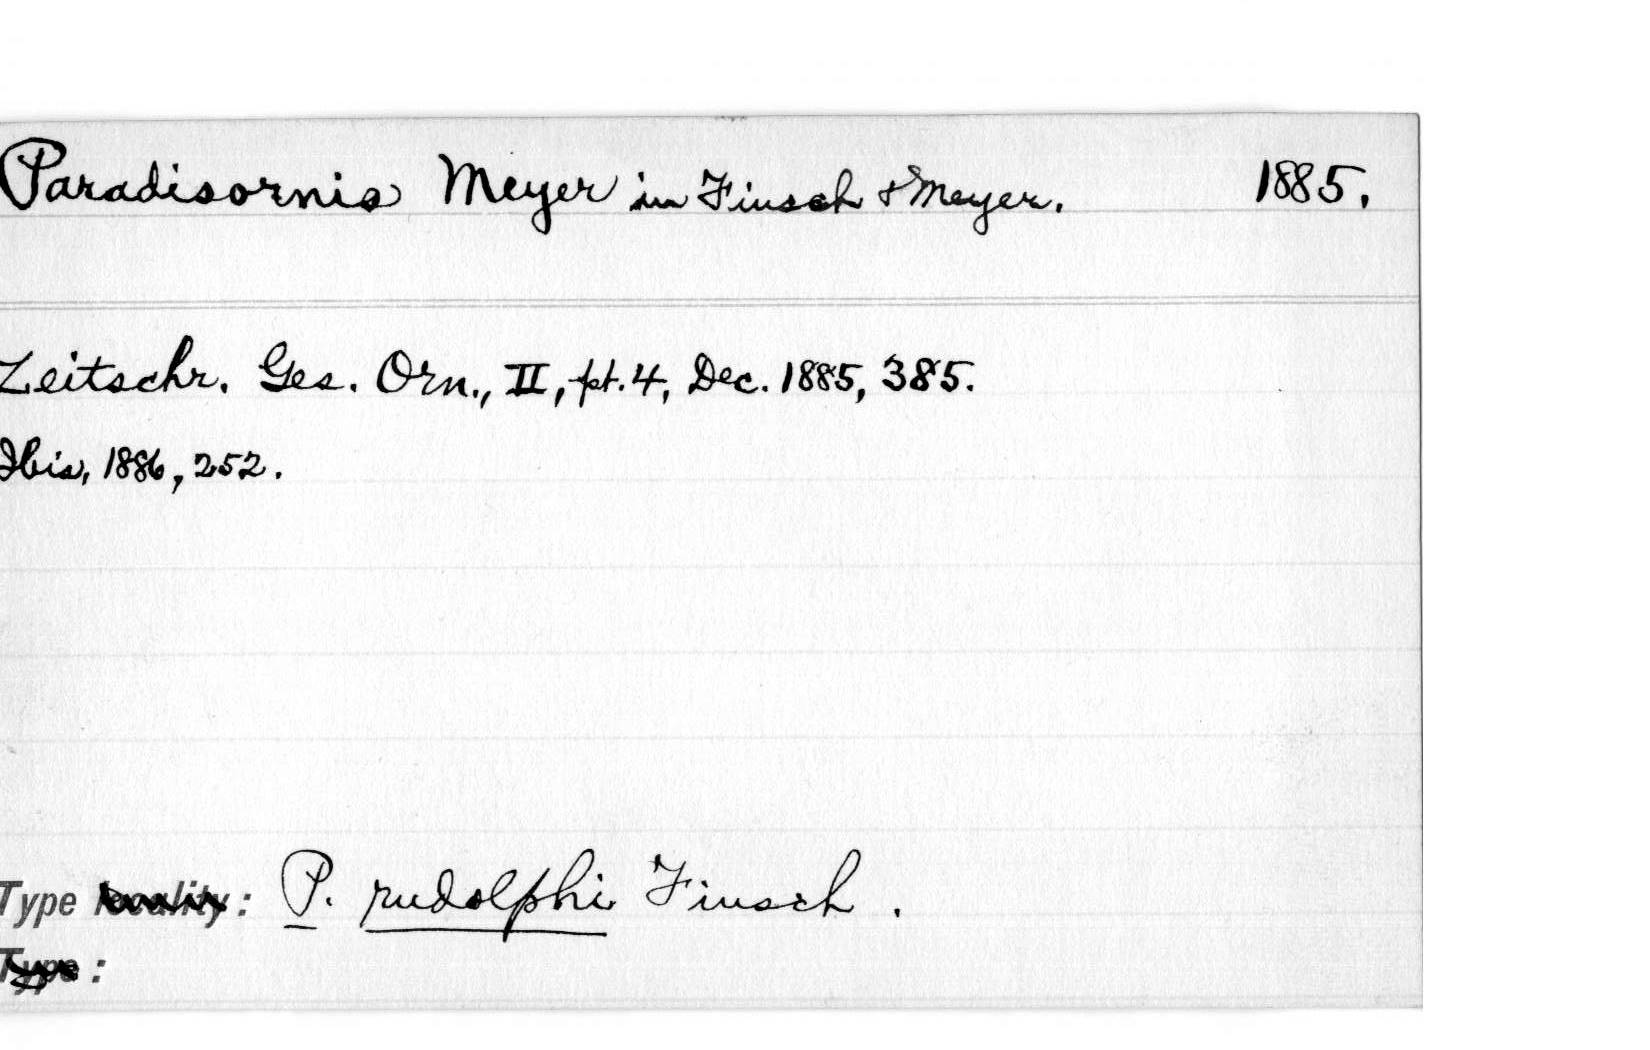 Paradisornis Meyer in Finsch & Meyer. 1885.
Zeitschr. Ges. Orn., II, pt. 4, Dec. 1885, 385.
Ibis, 1886, 252.
Type locality: P. rudolphi Finsch.
Type: